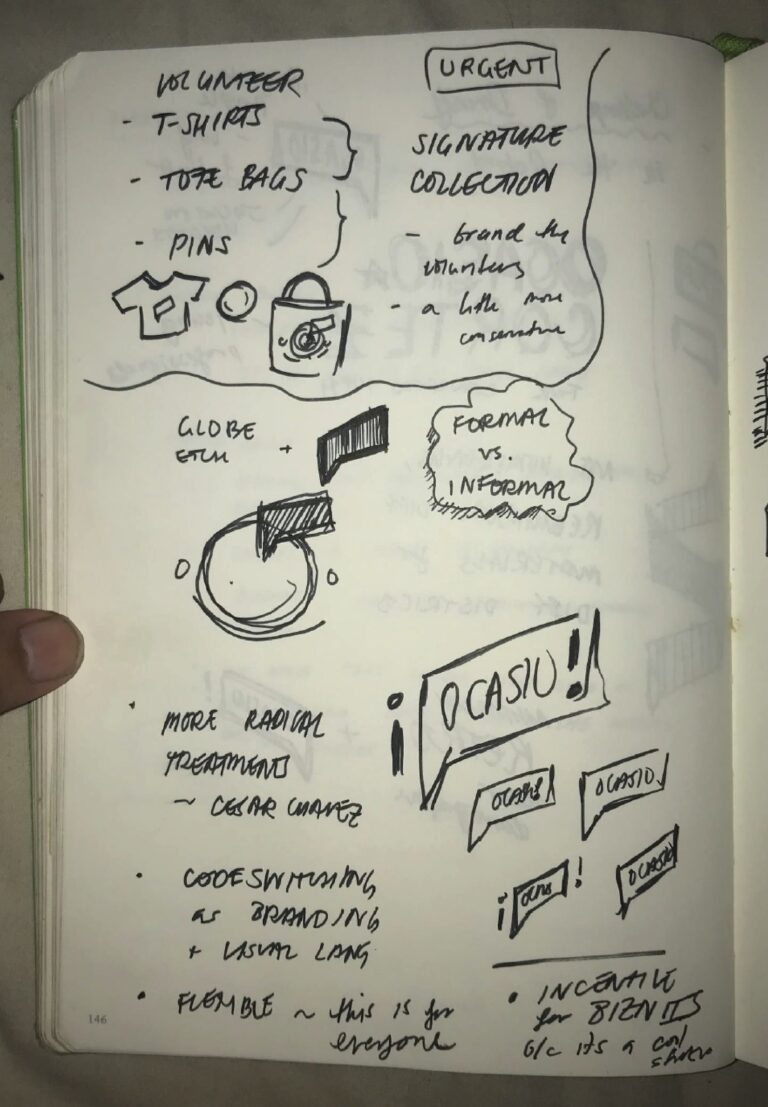 VOLUNTEER
- T-SHIRTS
- TOTE BAGS
- PINS
URGENT
SIGNATURE
COLLECTION
- brand the
volunteers
- a little more
conservative
GLOBE
ETCH +
FORMAL
vs.
INFORMAL
¡OCASIO!
• MORE RADICAL
TREATMENT
~ CESAR CHAVEZ
OCASIO!
OCASIO
¡ !
OCASIO
• CODESWITCHING
as BRANDING
+ VISUAL LANG
• FLEXIBLE ~ this is for
everyone
• INCENTIVE
for
b/c its a cool
146